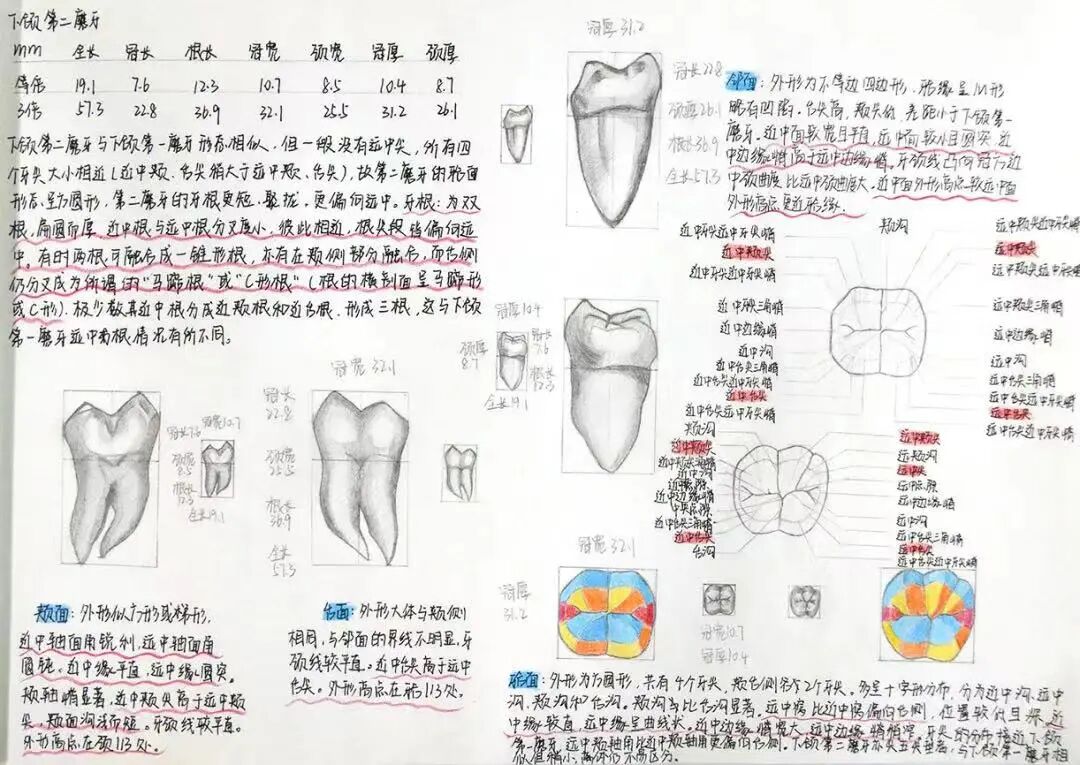 下颌第二磨牙
mm 全长 冠长 根长 冠宽 颈宽 冠厚 颈厚
等倍 19.1 7.6 12.3 10.7 8.5 10.4 8.7
3倍 57.3 22.8 36.9 32.1 25.5 31.2 26.1
下颌第二磨牙与下颌第一磨牙形态相似，但一般没有远中尖，所有四
个牙尖大小相近(近中颊、舌尖稍大于远中颊、舌尖)，故第二磨牙的𬌗面
形态呈方圆形，第二磨牙的牙根更短、聚拢，更偏向远中。牙根：为双
根，扁圆而厚，近中根与远中根分叉度小，彼此相近，根尖段皆偏向远
中。有时两根可融合成一锥形根，亦有在颊侧部分融合，而舌侧
仍分叉成为所谓的“马蹄根”或“C形根”(根的横剖面呈马蹄形
或C形)。极少数其近中根分成近颊根和近舌根，形成三根，这与下颌
第一磨牙远中两根情况有所不同。
冠宽32.1
冠长7.6
冠宽10.7
颈宽8.5
根长12.3
全长19.1
冠长22.8
颈宽25.5
根长36.9
全长57.3
颊面：外形似方形或梯形，
近中轴面角锐利，远中轴面角
圆钝，近中缘平直，远中缘圆突。
颊轴嵴显著，近中颊尖高于远中颊
尖，颊面沟浅而短。牙颈线较平直。
外形高点在颈1/3处。
舌面：外形大体与颊侧
相同，与邻面的界线不明显，牙
颈线较平直。近中舌尖高于远中
舌尖。外形高点在𬌗1/3处。
冠厚31.2
冠长22.8
颈厚26.1
根长36.9
全长57.3
邻面：外形为不等边四边形，𬌗缘呈V形
略有凹陷。舌尖高，颊尖低，差距小于下颌第一
磨牙。近中面较宽且平直，远中面较小且圆突，近
中边缘嵴高于远中边缘嵴。牙颈线凸向冠方，近
中颈曲度比远中颈曲度大。近中面外形高点较远中面
外形高点更近𬌗缘。
冠厚10.4
冠长7.6
颈厚8.7
根长12.3
全长19.1
颊沟
近中颊尖近中牙尖嵴
近中颊尖
近中三角嵴
近中边缘嵴
近中沟
近中舌尖三角嵴
近中舌尖近中牙尖嵴
近中舌尖
近中舌尖远中牙尖嵴
远中颊尖近中牙尖嵴
远中颊尖
远中颊尖远中牙尖嵴
远中颊尖三角嵴
远中边缘嵴
远中沟
远中舌尖三角嵴
远中舌尖远中牙尖嵴
远中舌尖
远中舌尖近中牙尖嵴
颊沟
近中颊尖
近中颊尖三角嵴
近中沟
近中边缘嵴
中央点隙
近中舌尖三角嵴
近中舌尖
舌沟
远中颊尖
远颊沟
远中尖
远中点隙
远中边缘嵴
远中沟
远中舌尖三角嵴
远中舌尖
远中舌尖远中牙尖嵴
冠宽32.1
冠厚31.2
冠宽10.7
冠厚10.4
𬌗面：外形为方圆形，共有4个牙尖，颊舌侧各为2个牙尖。多呈十字形分布，分为近中沟、远中
沟、颊沟和舌沟。颊沟多比舌沟显著。远中窝比近中窝偏向舌侧，位置较低且深。近
中缘较直，远中缘呈曲线状。近中边缘嵴宽大，远中边缘嵴稍窄。牙尖的分布接近下颌
第一磨牙，远中颊轴角比近中颊轴角更偏向舌侧。下颌第二磨牙亦有五尖型者，与下颌第一磨牙相